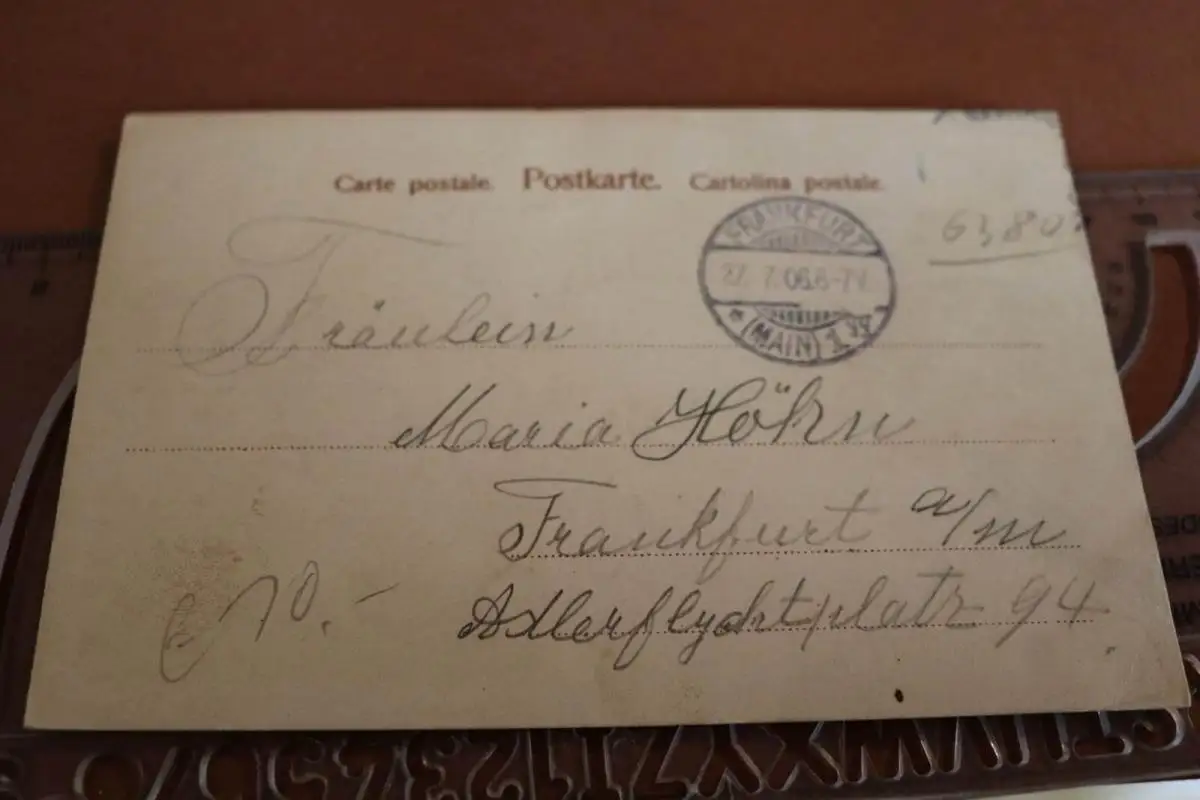 Carte postale. Postkarte. Cartolina postale.
FRANKFURT
27. 7. 06. 6-7 V.
* (MAIN) 1
61,80
Fräulein
Maria Höhn
Frankfurt a/m
Adlerflychtplatz 94.
10.-